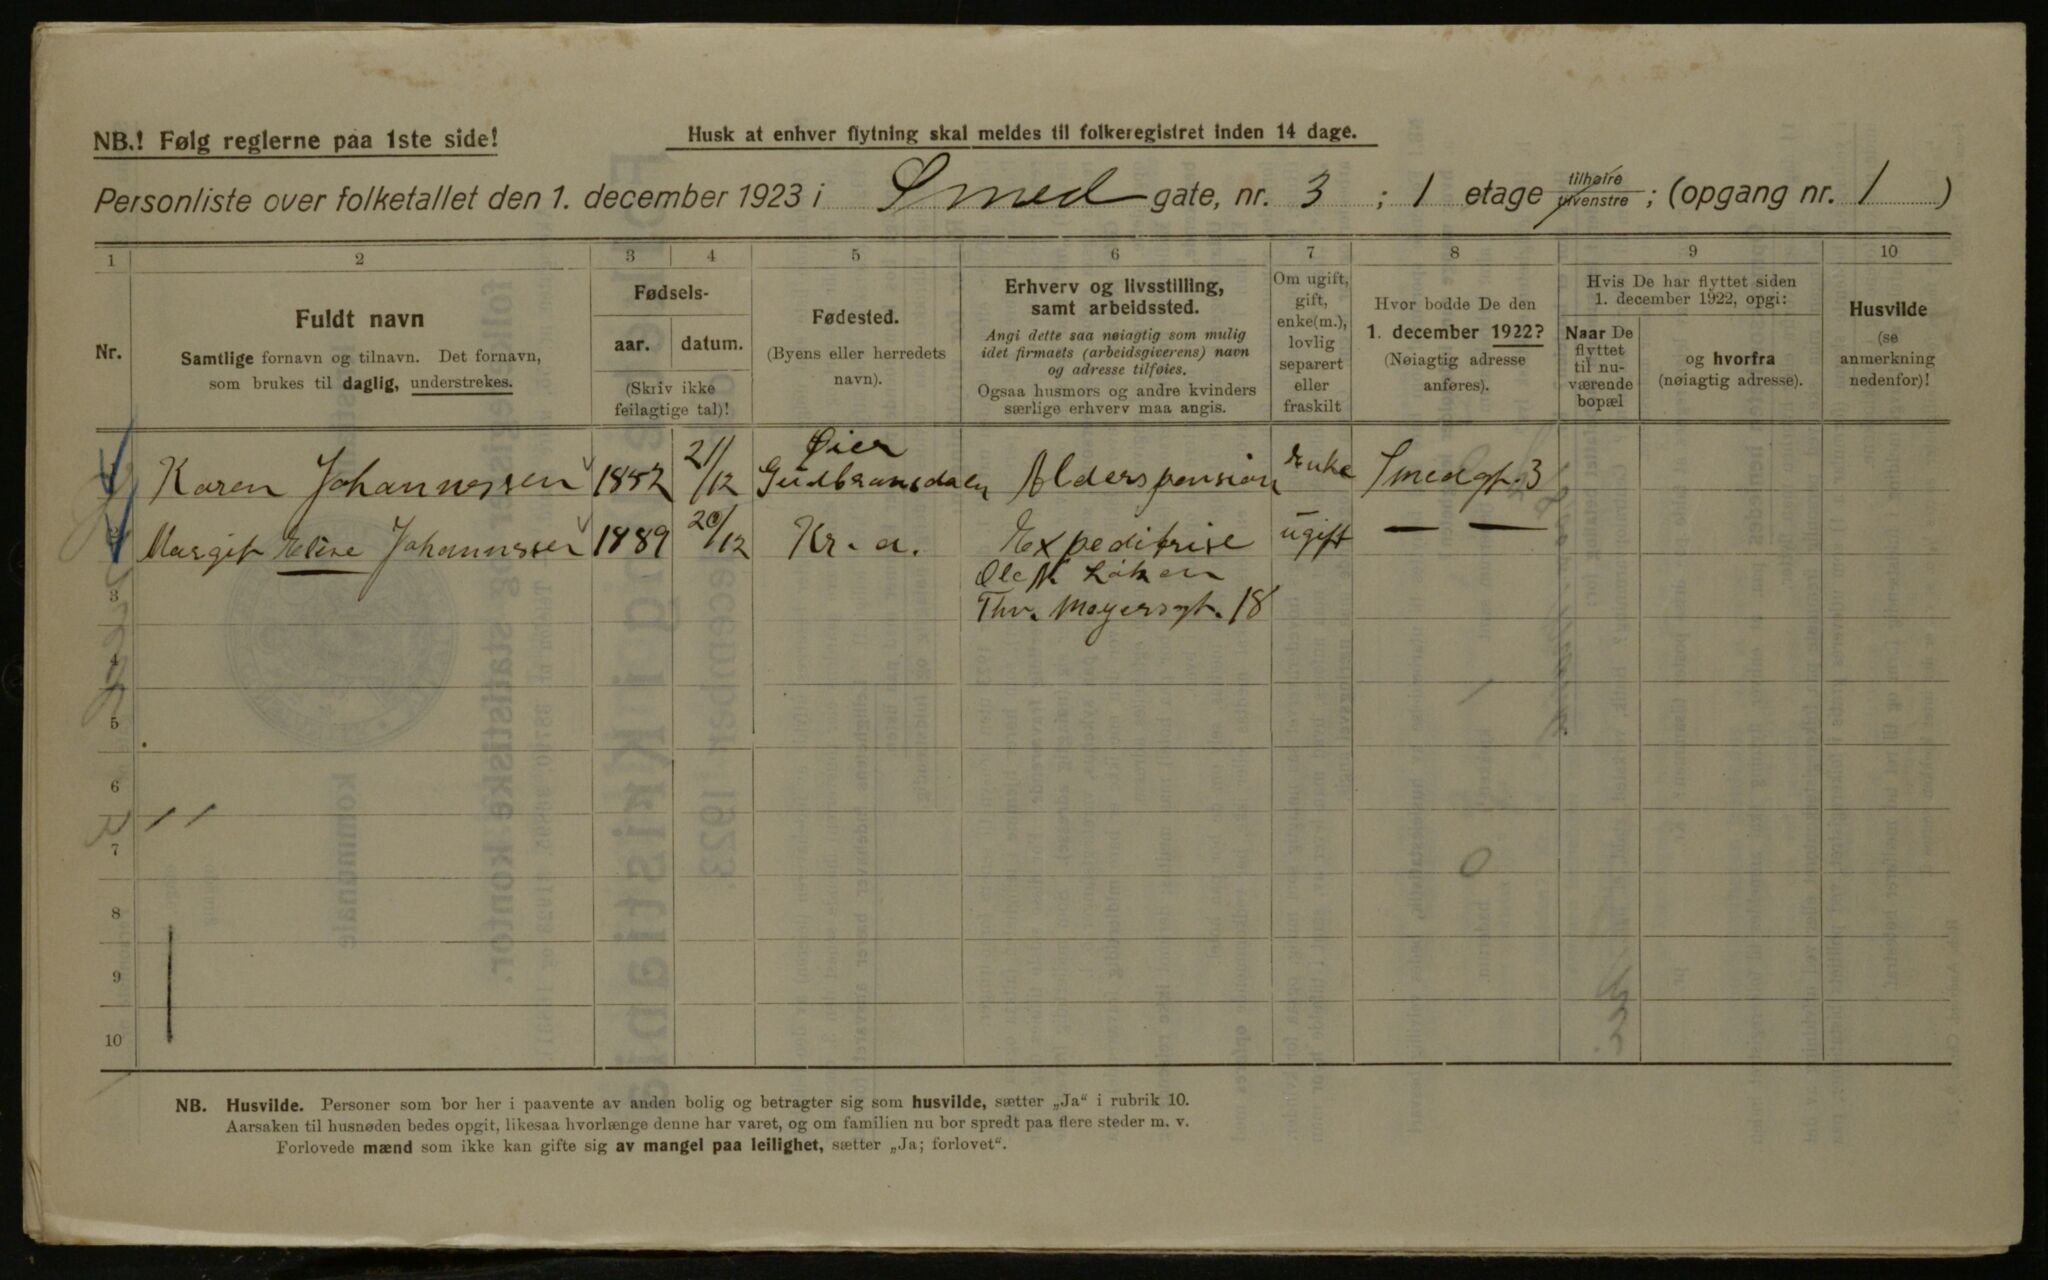 NB.! Følg reglerne paa 1ste side!
Husk at enhver flytning skal meldes til folkeregistret inden 14 dage.
Personliste over folketallet den 1. december 1923 i Smed gate, nr. 3 ; 1 etage tilhøire tilvenstre ; (opgang nr. 1 )
1 2 3 4 5 6 7 8 9 10
Nr.
Fuldt navn
Samtlige fornavn og tilnavn. Det fornavn,
som brukes til daglig, understrekes.
Fødsels-
aar. datum.
(Skriv ikke
feilagtige tal)!
Fødested.
(Byens eller herredets
navn).
Erhverv og livsstilling,
samt arbeidssted.
Angi dette saa nøiagtig som mulig
idet firmaets (arbeidsgiverens) navn
og adresse tilføies.
Ogsaa husmors og andre kvinders
særlige erhverv maa angis.
Om ugift,
gift,
enke(m.),
lovlig
separert
eller
fraskilt
Hvor bodde De den
1. december 1922?
(Nøiagtig adresse
anføres).
Hvis De har flyttet siden
1. december 1922, opgi:
Naar De
flyttet
til nu-
værende
bopæl
og hvorfra
(nøiagtig adresse).
Husvilde
(se
anmerkning
nedenfor)!
Karen Johannessen 1857 21/12 Øier Gudbransdalen Alderspension Enke Smedgt. 3
2 Margit Elise Johannessen 1889 20/12 Kr.a. Expeditrise ugift — —
Ole N Løken
3 Thv. Meyersgt. 18
4
5
6
7
8
9
10
NB. Husvilde. Personer som bor her i paavente av anden bolig og betragter sig som husvilde, sætter „Ja“ i rubrik 10.
Aarsaken til husnøden bedes opgit, likesaa hvorlænge denne har varet, og om familien nu bor spredt paa flere steder m. v.
Forlovede mænd som ikke kan gifte sig av mangel paa leilighet, sætter „Ja; forlovet“.